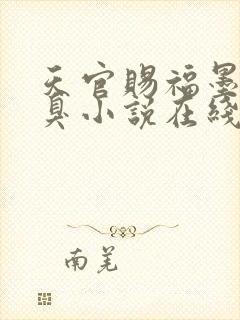 天官赐福墨
臭小说在线
南羌